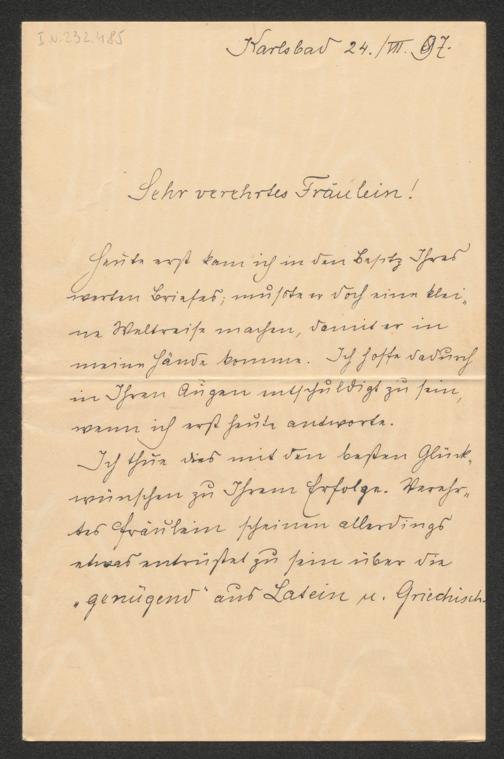 I.N. 232.485
Karlsbad 24./VII. 97.
Sehr verehrtes Fräulein!
Heute erst kam ich in den Besitz Ihres
werten Briefes; mußte er doch eine klei-
ne Weltreise machen, damit er in
meine Hände komme. Ich hoffe dadurch
in Ihren Augen entschuldigt zu sein,
wenn ich erst heute antworte.
Ich thue dies mit den besten Glück-
wünschen zu Ihrem Erfolge. Verehr-
tes Fräulein scheinen allerdings
etwas entrüstet zu sein über die
"genügend" aus Latein u. Griechisch.